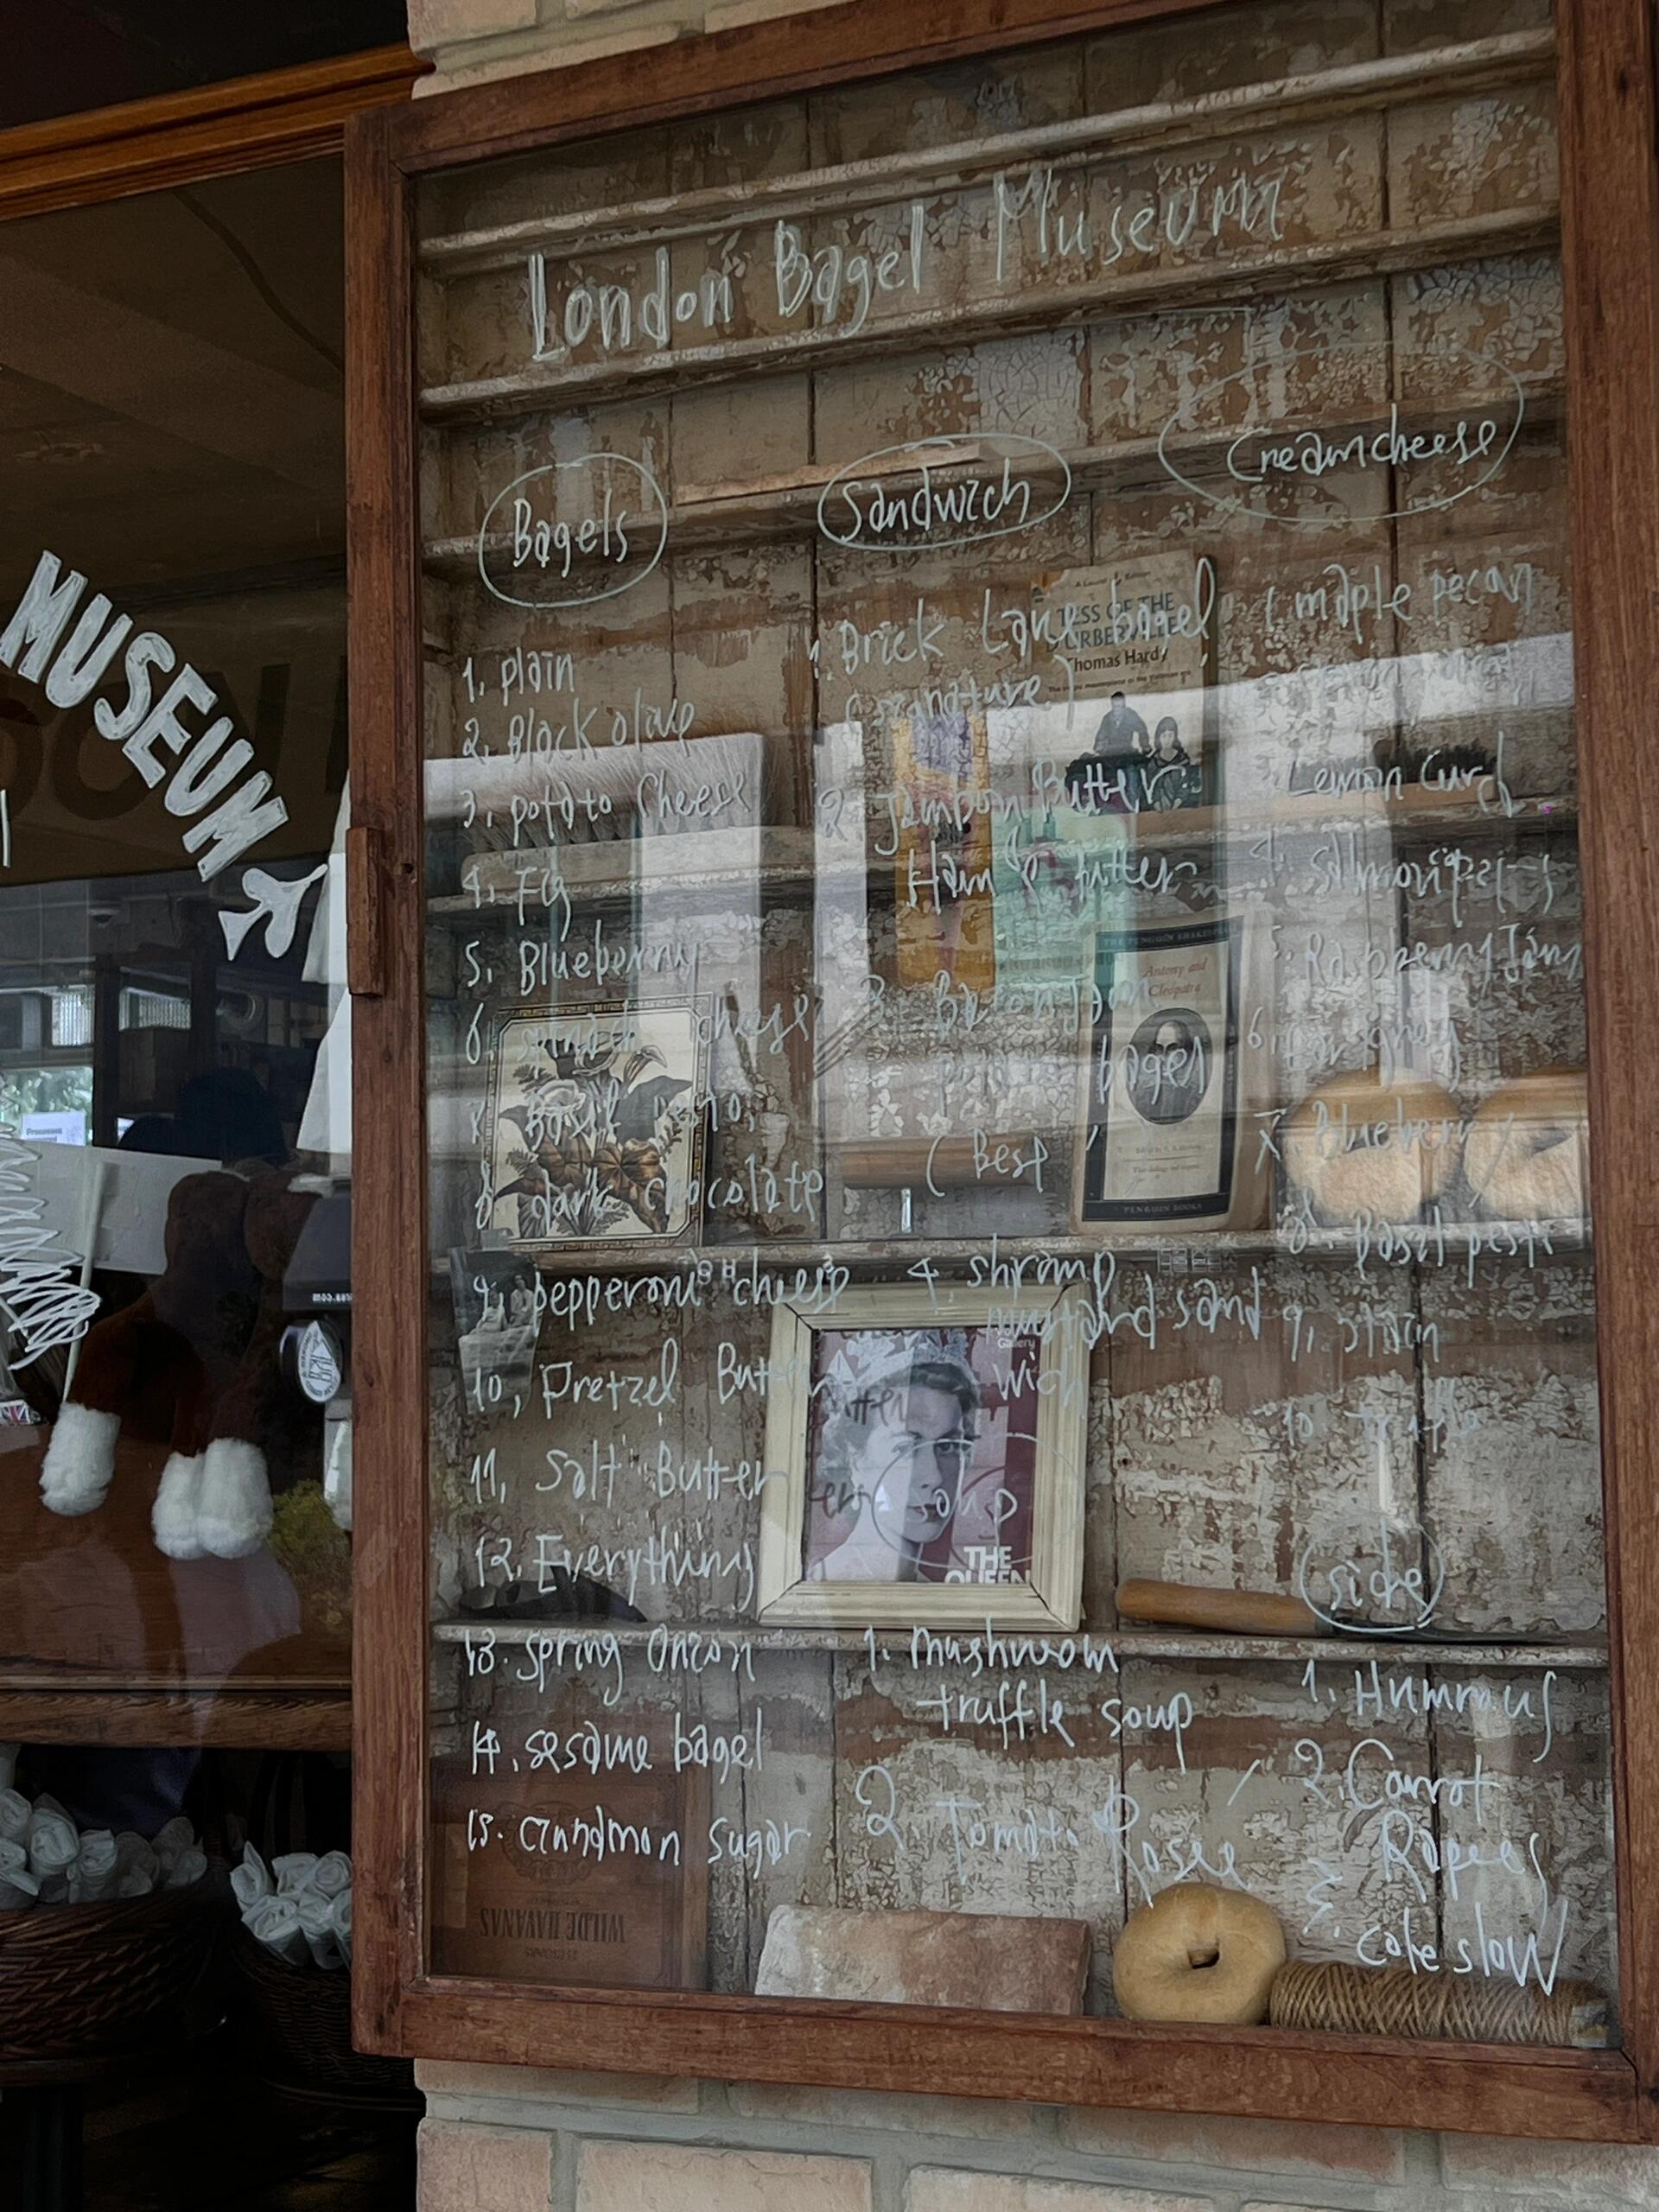 MUSEUM
London Bagel Museum
Bagels
1. plain
2. Black olive
3. potato Cheese
4. Fig
5. Blueberry
6. cheese
7. Basil
8. dark chocolate
9. pepperoni cheese
10, Pretzel Butter
11, Salt Butter
12. Everything
13. Spring Onion
14. sesame bagel
15. cinnamon sugar
Sandwich
1. Brick Lane bagel
(signature)
2. Jambon Butter
Ham & butter
3.
bagel
( Best )
4. shrimp
mustard sand
wich
soup
1. mushroom
truffle soup
2. Tomato Rosee
Creamcheese
1 maple pecan
3. Lemon Curd
4. Salmon
5. Raspberry Jam
6.
7. Blueberry
8. Basil pesto
9,
10
side
1. Hummus
2. Carrot
Rapees
3. cole slow
A Laurel Edition
TESS OF THE
D'URBERVILLES
Thomas Hardy
THE PENGUIN SHAKESPEARE
Antony and
Cleopatra
PENGUIN BOOKS
Gallery
THE
QUEEN
WILDE HAVANAS